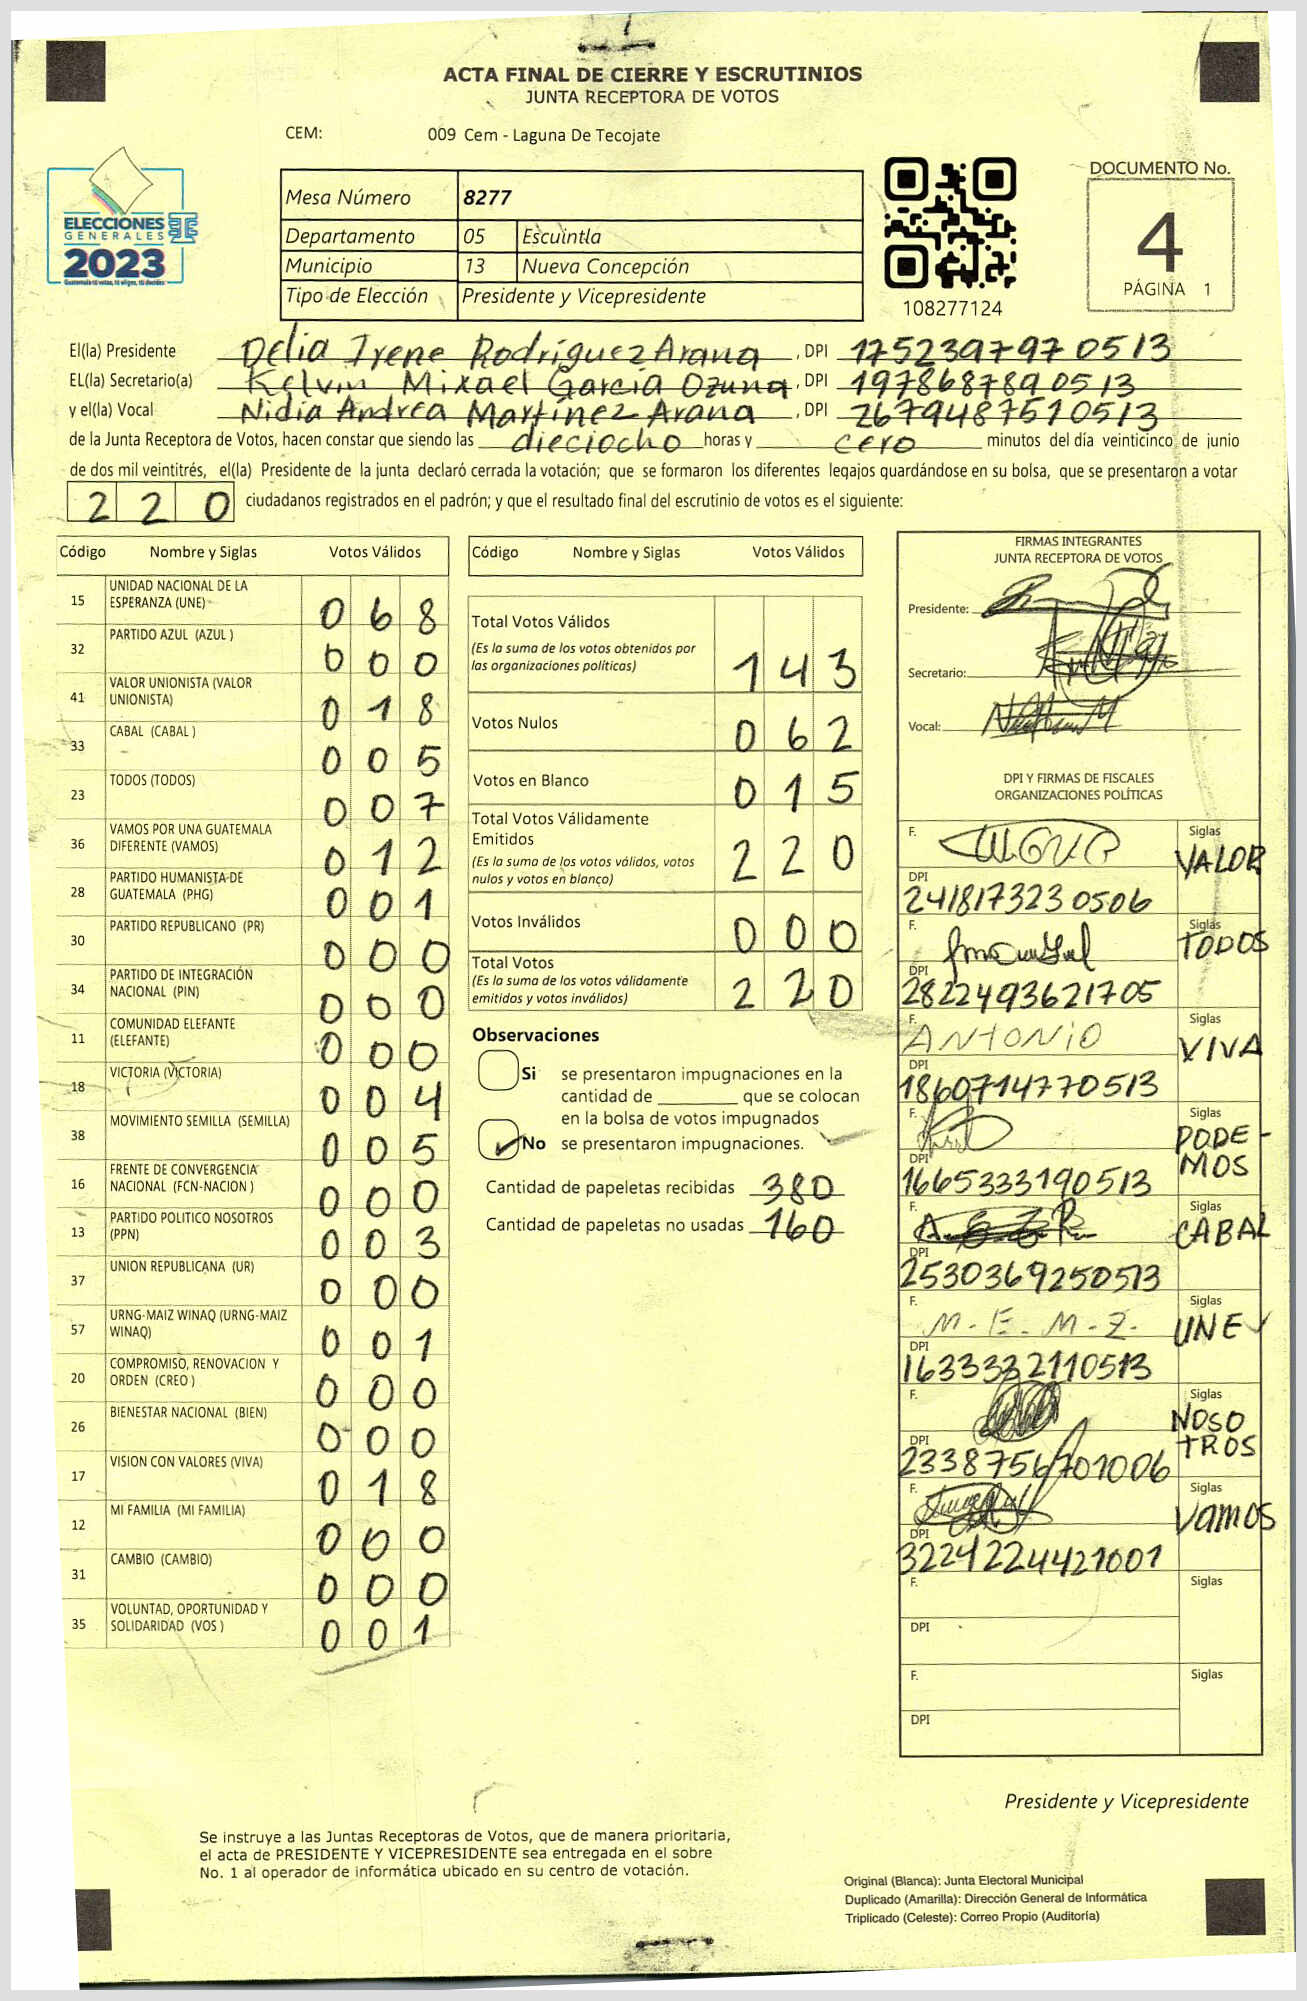 ACTA FINAL DE CIERRE Y ESCRUTINIOS
JUNTA RECEPTORA DE VOTOS
CEM: 009 Cem - Laguna De Tecojate
ELECCIONES
GENERALES
2023
Guatemala tú votas, tú eliges, tú decides
Mesa Número 8277
Departamento 05 Escuintla
Municipio 13 Nueva Concepción
Tipo de Elección Presidente y Vicepresidente
108277124
DOCUMENTO No.
4
PÁGINA 1
El(la) Presidente Delia Irene Rodríguez Arana , DPI 1752397970513
EL(la) Secretario(a) Kelvin Mixael Garcia Ozuna , DPI 1978687890513
y el(la) Vocal Nidia Andrea Martínez Arana , DPI 2679487510513
de la Junta Receptora de Votos, hacen constar que siendo las dieciocho horas y cero minutos del día veinticinco de junio
de dos mil veintitrés, el(la) Presidente de la junta declaró cerrada la votación; que se formaron los diferentes legajos guardándose en su bolsa, que se presentaron a votar
220 ciudadanos registrados en el padrón; y que el resultado final del escrutinio de votos es el siguiente:
Código Nombre y Siglas Votos Válidos
15 UNIDAD NACIONAL DE LA ESPERANZA (UNE) 068
32 PARTIDO AZUL (AZUL ) 000
41 VALOR UNIONISTA (VALOR UNIONISTA) 018
33 CABAL (CABAL ) 005
23 TODOS (TODOS) 007
36 VAMOS POR UNA GUATEMALA DIFERENTE (VAMOS) 012
28 PARTIDO HUMANISTA DE GUATEMALA (PHG) 001
30 PARTIDO REPUBLICANO (PR) 000
34 PARTIDO DE INTEGRACIÓN NACIONAL (PIN) 000
11 COMUNIDAD ELEFANTE (ELEFANTE) 000
18 VICTORIA (VICTORIA) 004
38 MOVIMIENTO SEMILLA (SEMILLA) 005
16 FRENTE DE CONVERGENCIA NACIONAL (FCN-NACION ) 000
13 PARTIDO POLITICO NOSOTROS (PPN) 003
37 UNION REPUBLICANA (UR) 000
57 URNG-MAIZ WINAQ (URNG-MAIZ WINAQ) 001
20 COMPROMISO, RENOVACION Y ORDEN (CREO ) 000
26 BIENESTAR NACIONAL (BIEN) 000
17 VISION CON VALORES (VIVA) 018
12 MI FAMILIA (MI FAMILIA) 000
31 CAMBIO (CAMBIO) 000
35 VOLUNTAD, OPORTUNIDAD Y SOLIDARIDAD (VOS ) 001
Código Nombre y Siglas Votos Válidos
Total Votos Válidos 143
(Es la suma de los votos obtenidos por
las organizaciones políticas)
Votos Nulos 062
Votos en Blanco 015
Total Votos Válidamente
Emitidos 220
(Es la suma de los votos válidos, votos
nulos y votos en blanco)
Votos Inválidos 000
Total Votos 220
(Es la suma de los votos válidamente
emitidos y votos inválidos)
Observaciones
Si se presentaron impugnaciones en la
cantidad de ________ que se colocan
en la bolsa de votos impugnados
No se presentaron impugnaciones.
Cantidad de papeletas recibidas 380
Cantidad de papeletas no usadas 160
FIRMAS INTEGRANTES
JUNTA RECEPTORA DE VOTOS
Presidente:
Secretario:
Vocal:
DPI Y FIRMAS DE FISCALES
ORGANIZACIONES POLÍTICAS
F. Siglas VALOR
DPI 2418173230506
F. Siglas TODOS
DPI 2822493621705
F. ANTONIO Siglas VIVA
DPI 1860714770513
F. Siglas PODE-
MOS
DPI 1665333190513
F. Siglas CABAL
DPI 2530369250513
F. M.E.M.Z. Siglas UNE
DPI 1633332110513
F. Siglas NOSO
TROS
DPI 2338756701006
F. Siglas VAMOS
DPI 3224224421001
F. Siglas
DPI
F. Siglas
DPI
Presidente y Vicepresidente
Se instruye a las Juntas Receptoras de Votos, que de manera prioritaria,
el acta de PRESIDENTE Y VICEPRESIDENTE sea entregada en el sobre
No. 1 al operador de informática ubicado en su centro de votación.
Original (Blanca): Junta Electoral Municipal
Duplicado (Amarilla): Dirección General de Informática
Triplicado (Celeste): Correo Propio (Auditoría)